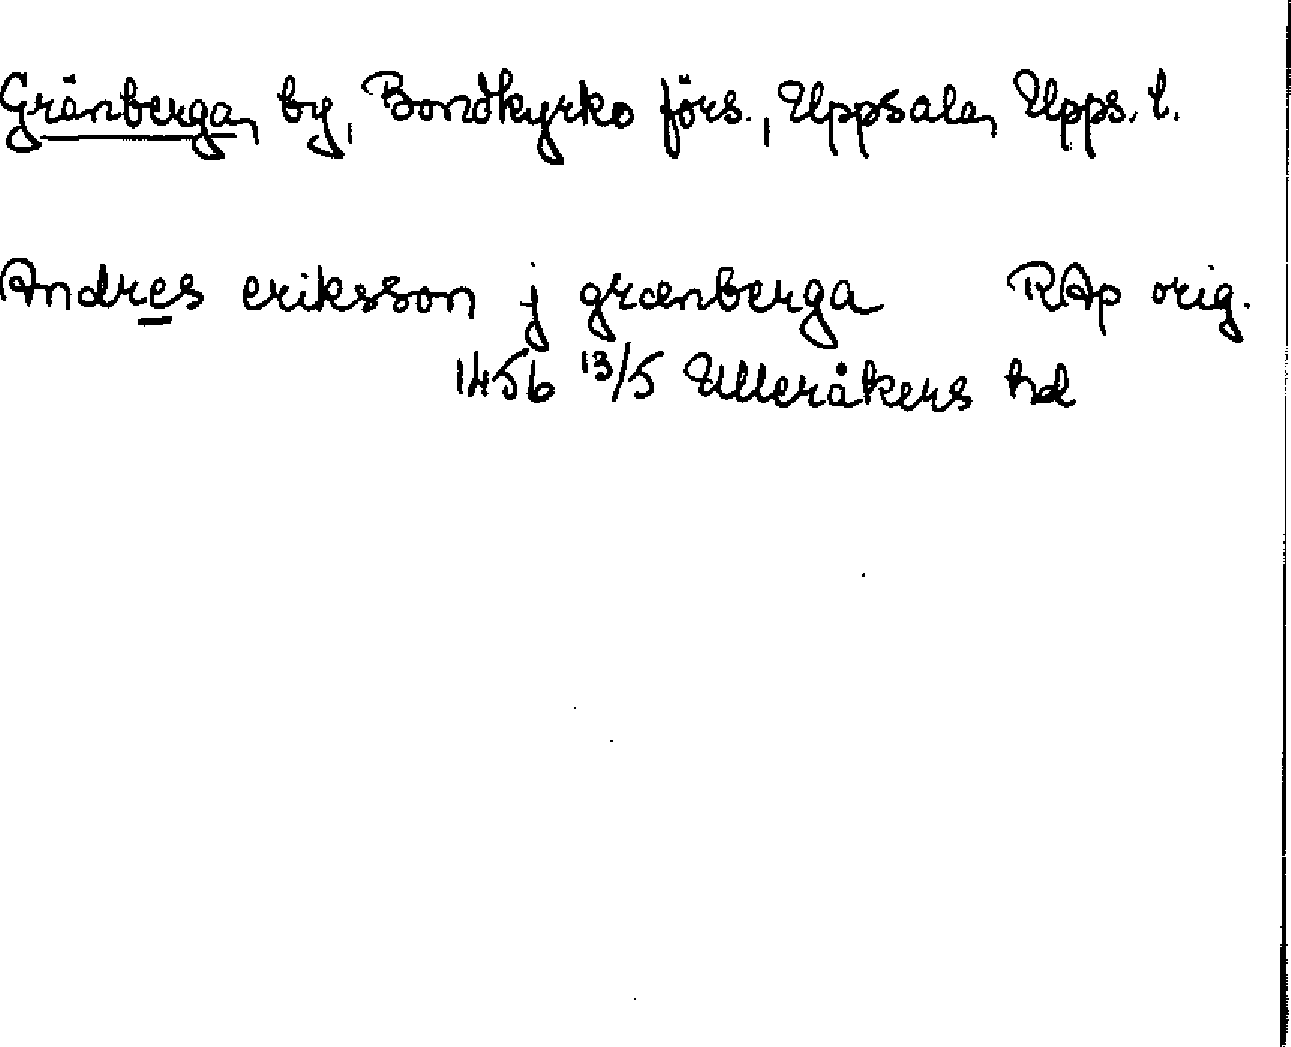 Gränberga, by, Bondkyrko förs., Uppsala, Upps. l.
Andres eriksson j grænberga RAp orig.
1456 13/5 Ulleråkers hd